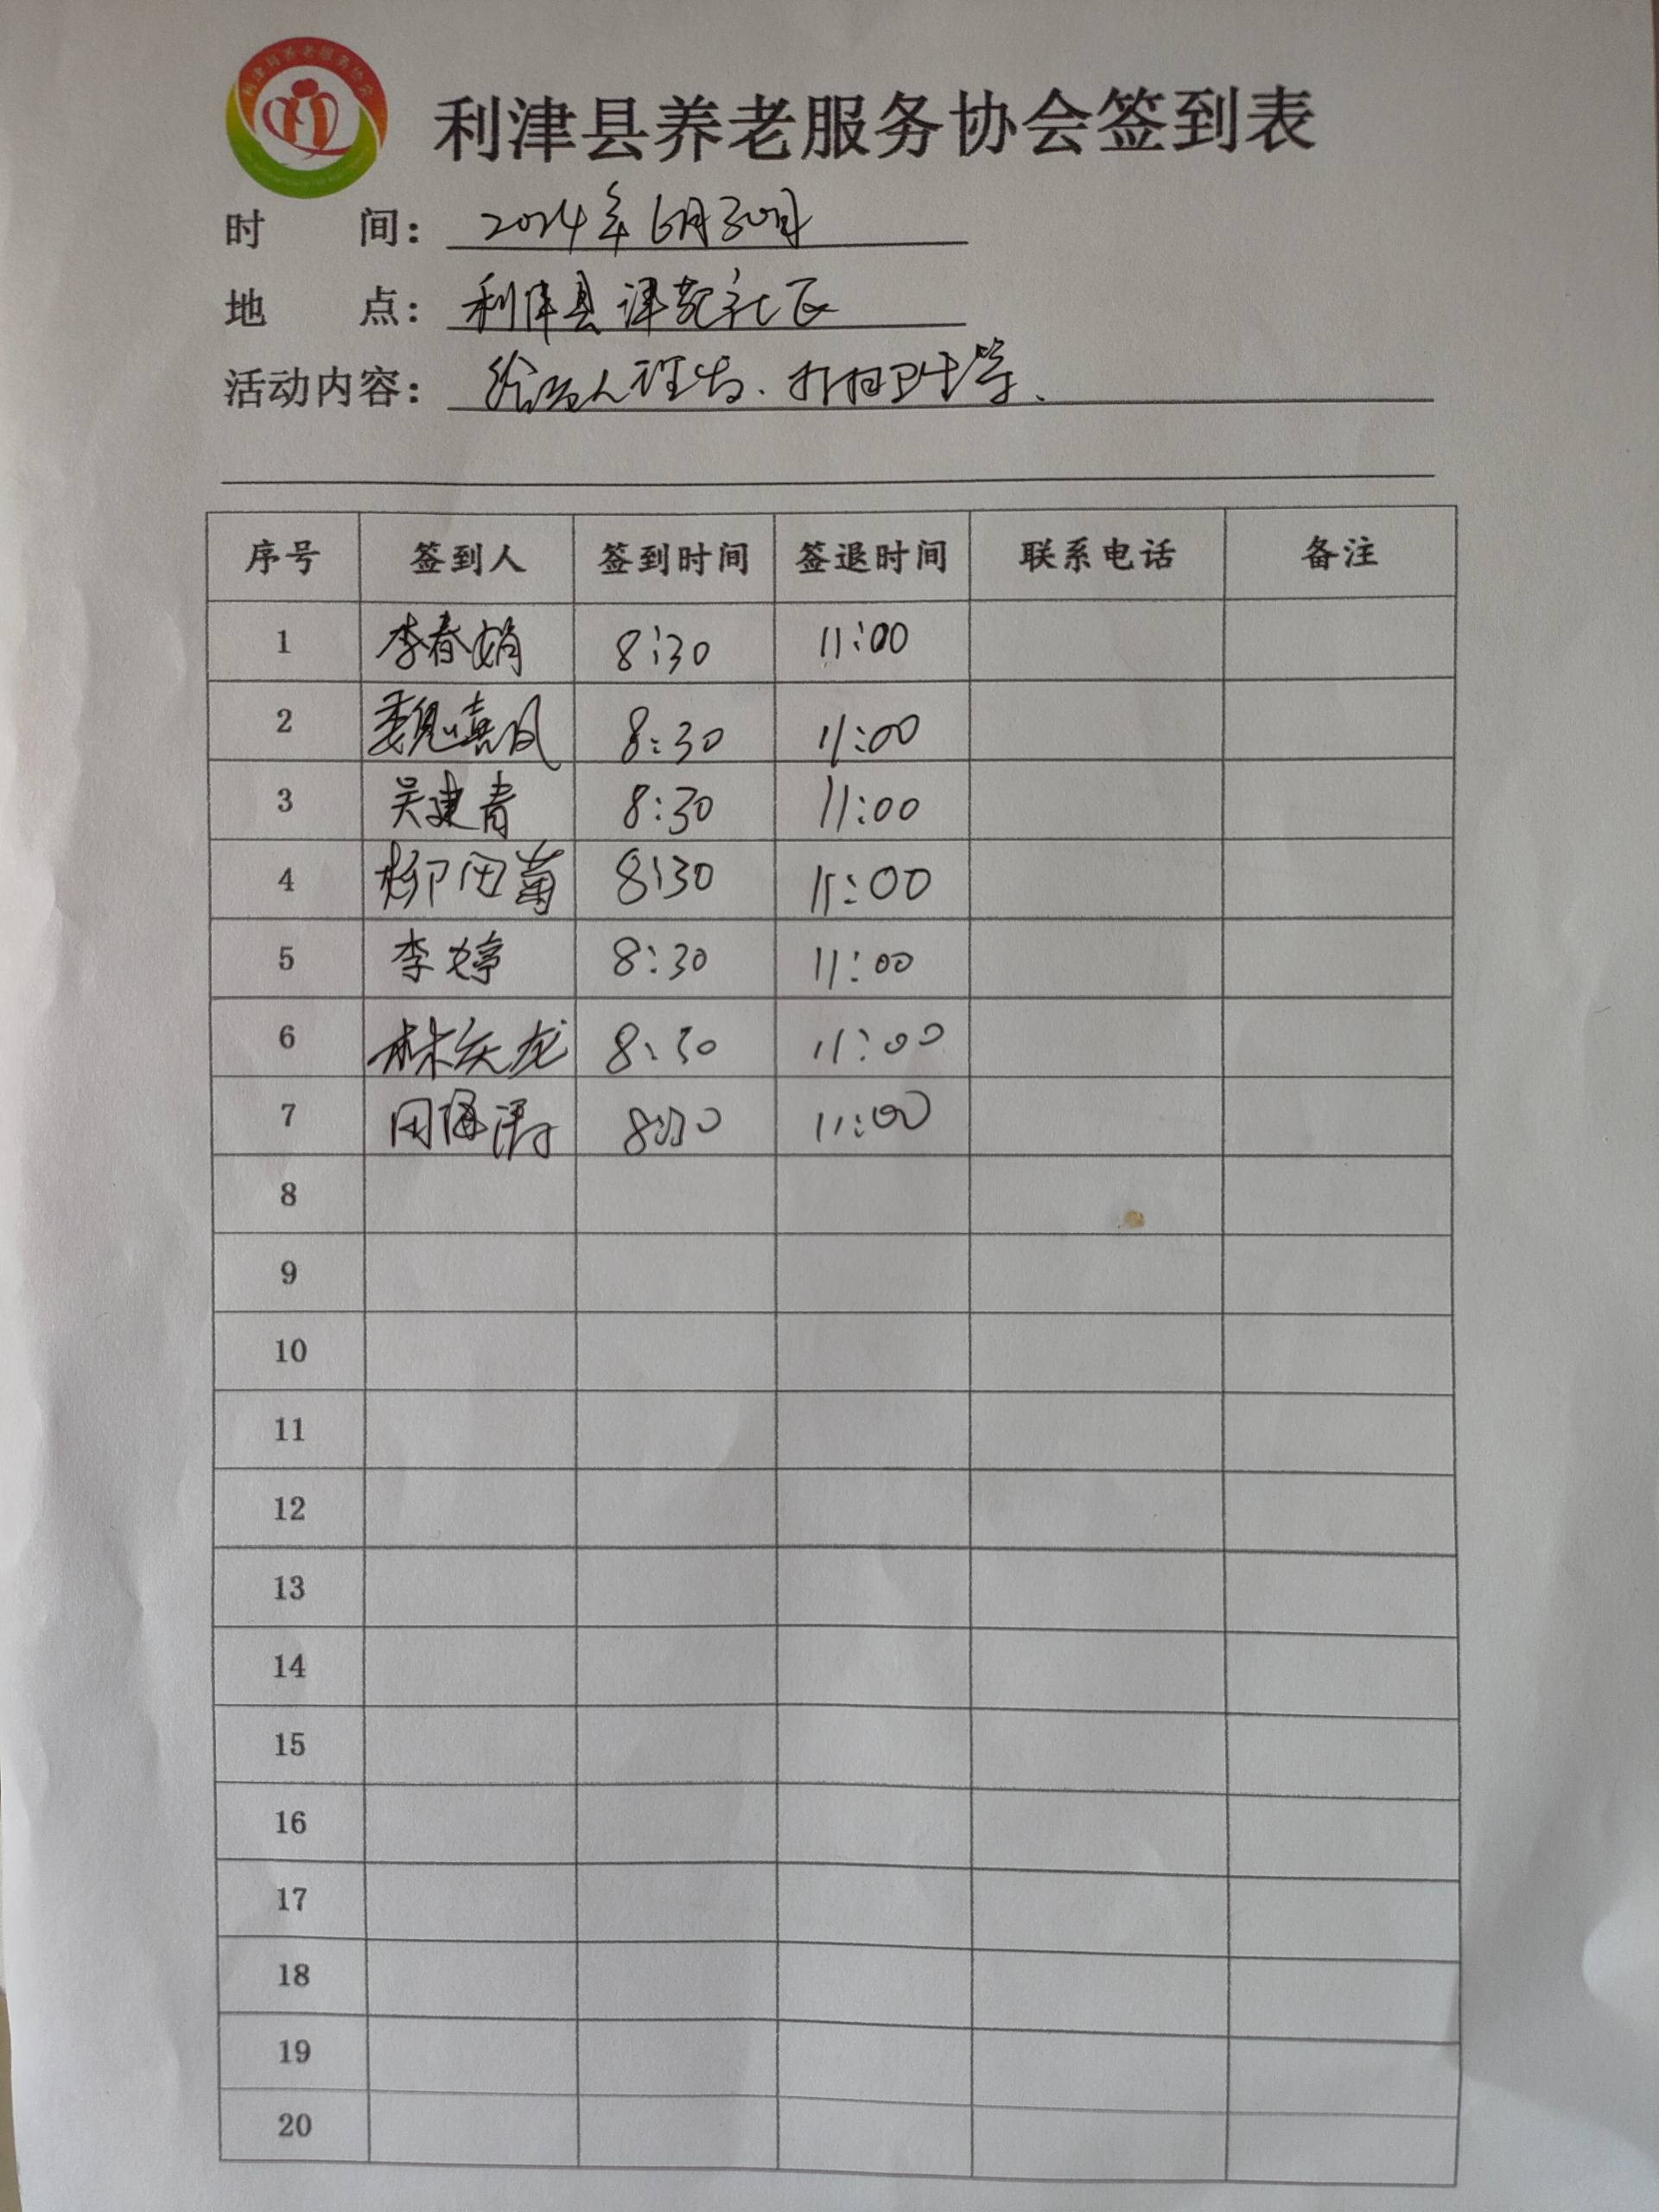 利津县养老服务协会
利津县养老服务协会签到表
时 间: 2024年6月30日
地 点: 利津县津苑社区
活动内容: 给老人理发、打扫卫生等、
序号 签到人 签到时间 签退时间 联系电话 备注
1 李春娟 8:30 11:00
2 魏 凤 8:30 11:00
3 吴建青 8:30 11:00
4 柳田菊 8:30 11:00
5 李婷 8:30 11:00
6 林庆龙 8:30 11:00
7 田海涛 8:30 11:00
8
9
10
11
12
13
14
15
16
17
18
19
20